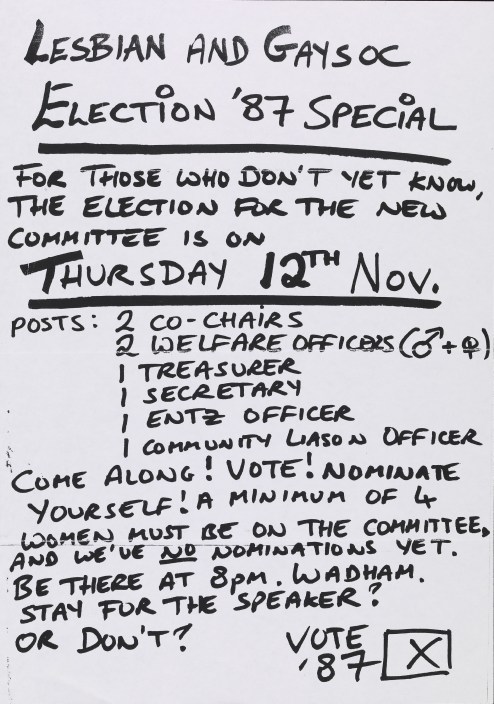 LESBIAN AND GAYSOC
ELECTION '87 SPECIAL
FOR THOSE WHO DON'T YET KNOW,
THE ELECTION FOR THE NEW
COMMITTEE IS ON
THURSDAY 12TH NOV.
POSTS: 2 CO-CHAIRS
2 WELFARE OFFICERS (♂+♀)
1 TREASURER
1 SECRETARY
1 ENTZ OFFICER
1 COMMUNITY LIASON OFFICER
COME ALONG! VOTE! NOMINATE
YOURSELF! A MINIMUM OF 4
WOMEN MUST BE ON THE COMMITTEE,
AND WE'VE NO NOMINATIONS YET.
BE THERE AT 8PM. WADHAM.
STAY FUR THE SPEAKER?
OR DON'T?
VOTE
'87 X